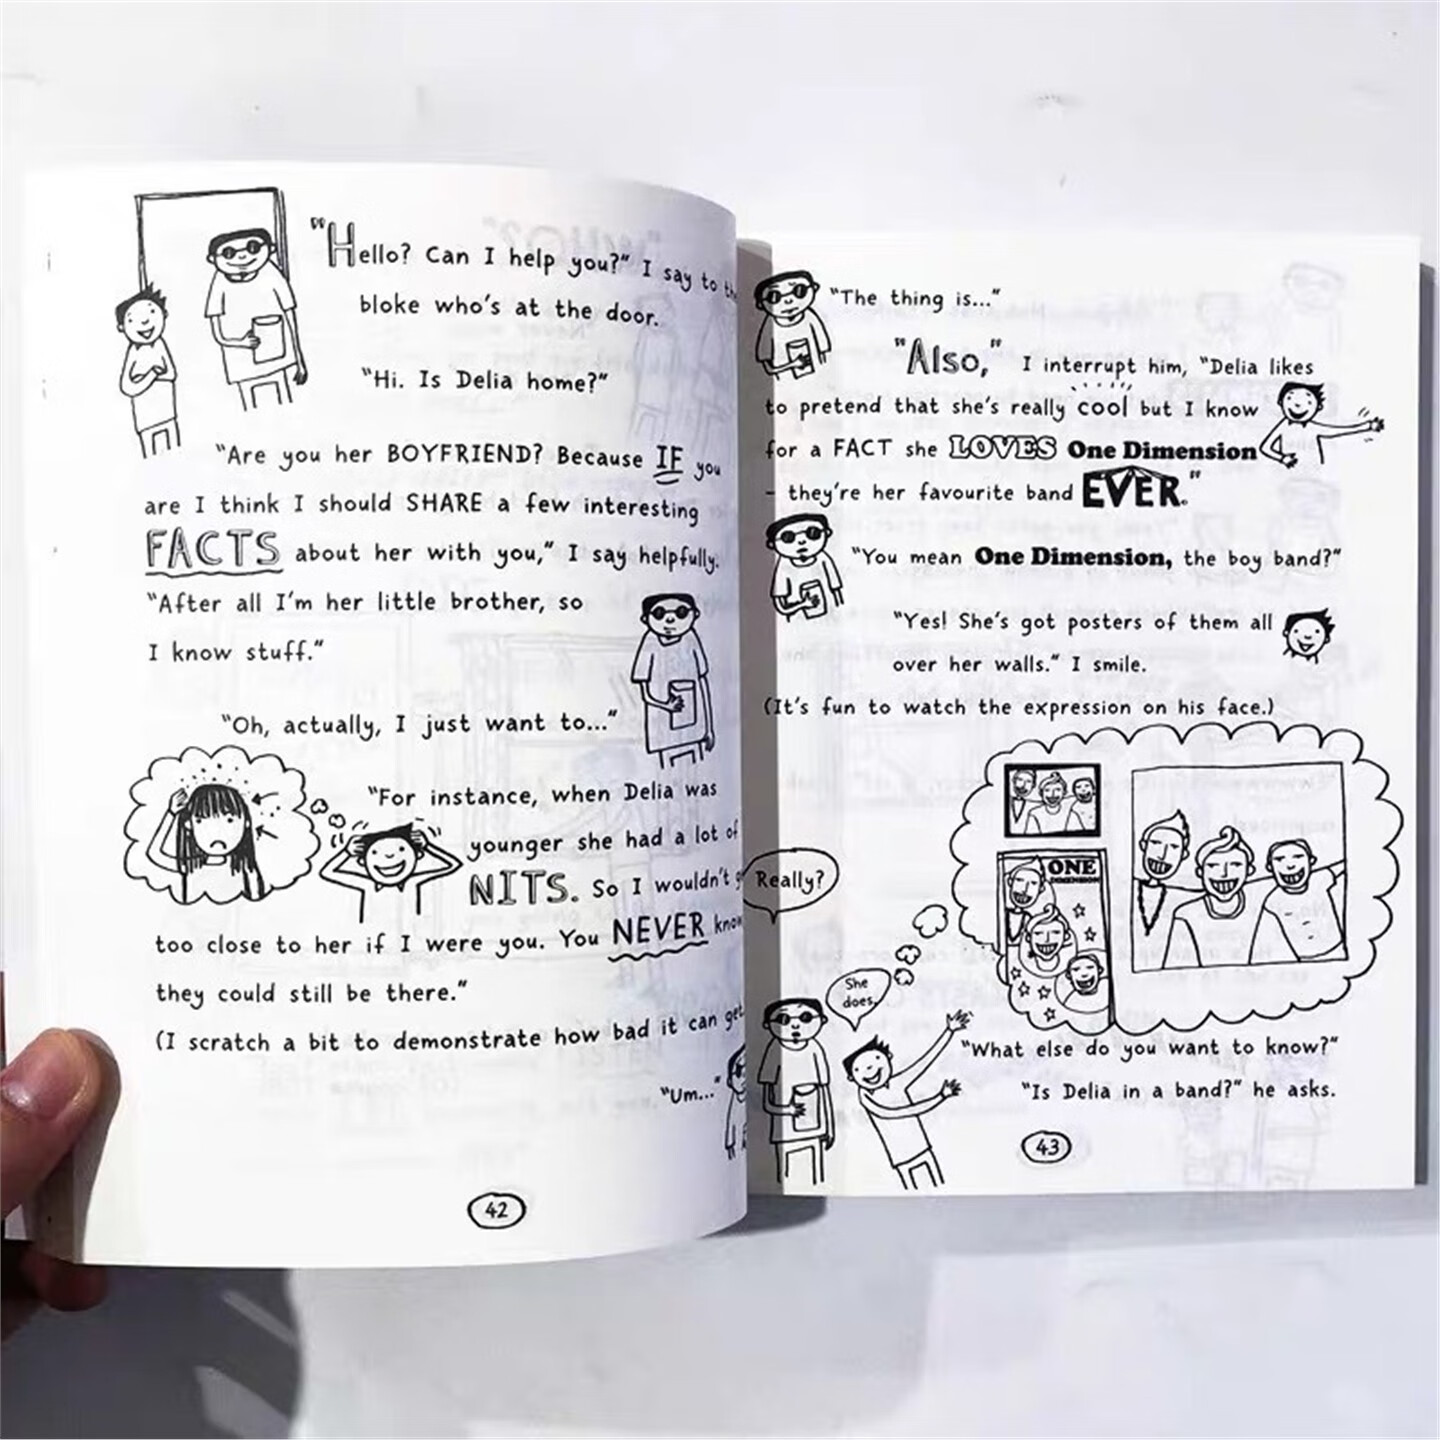 "Hello? Can I help you?" I say to
bloke who's at the door.
"Hi. Is Delia home?"
"Are you her BOYFRIEND? Because IF you
are I think I should SHARE a few interesting
FACTS about her with you," I say helpfully.
"After all I'm her little brother, so
I know stuff."
"Oh, actually, I just want to..."
"For instance, when Delia was
younger she had a lot of
NITS. So I wouldn't
too close to her if I were you. You NEVER know
they could still be there."
(I scratch a bit to demonstrate how bad it can get
"Um..."
42
"The thing is..."
"Also," I interrupt him, "Delia likes
to pretend that she's really cool but I know
for a FACT she LOVES One Dimension
– they're her favourite band EVER."
"You mean One Dimension, the boy band?"
"Yes! She's got posters of them all
over her walls." I smile.
(It's fun to watch the expression on his face.)
ONE
DIMENSION
Really?
She
does.
"What else do you want to know?"
"Is Delia in a band?" he asks.
43